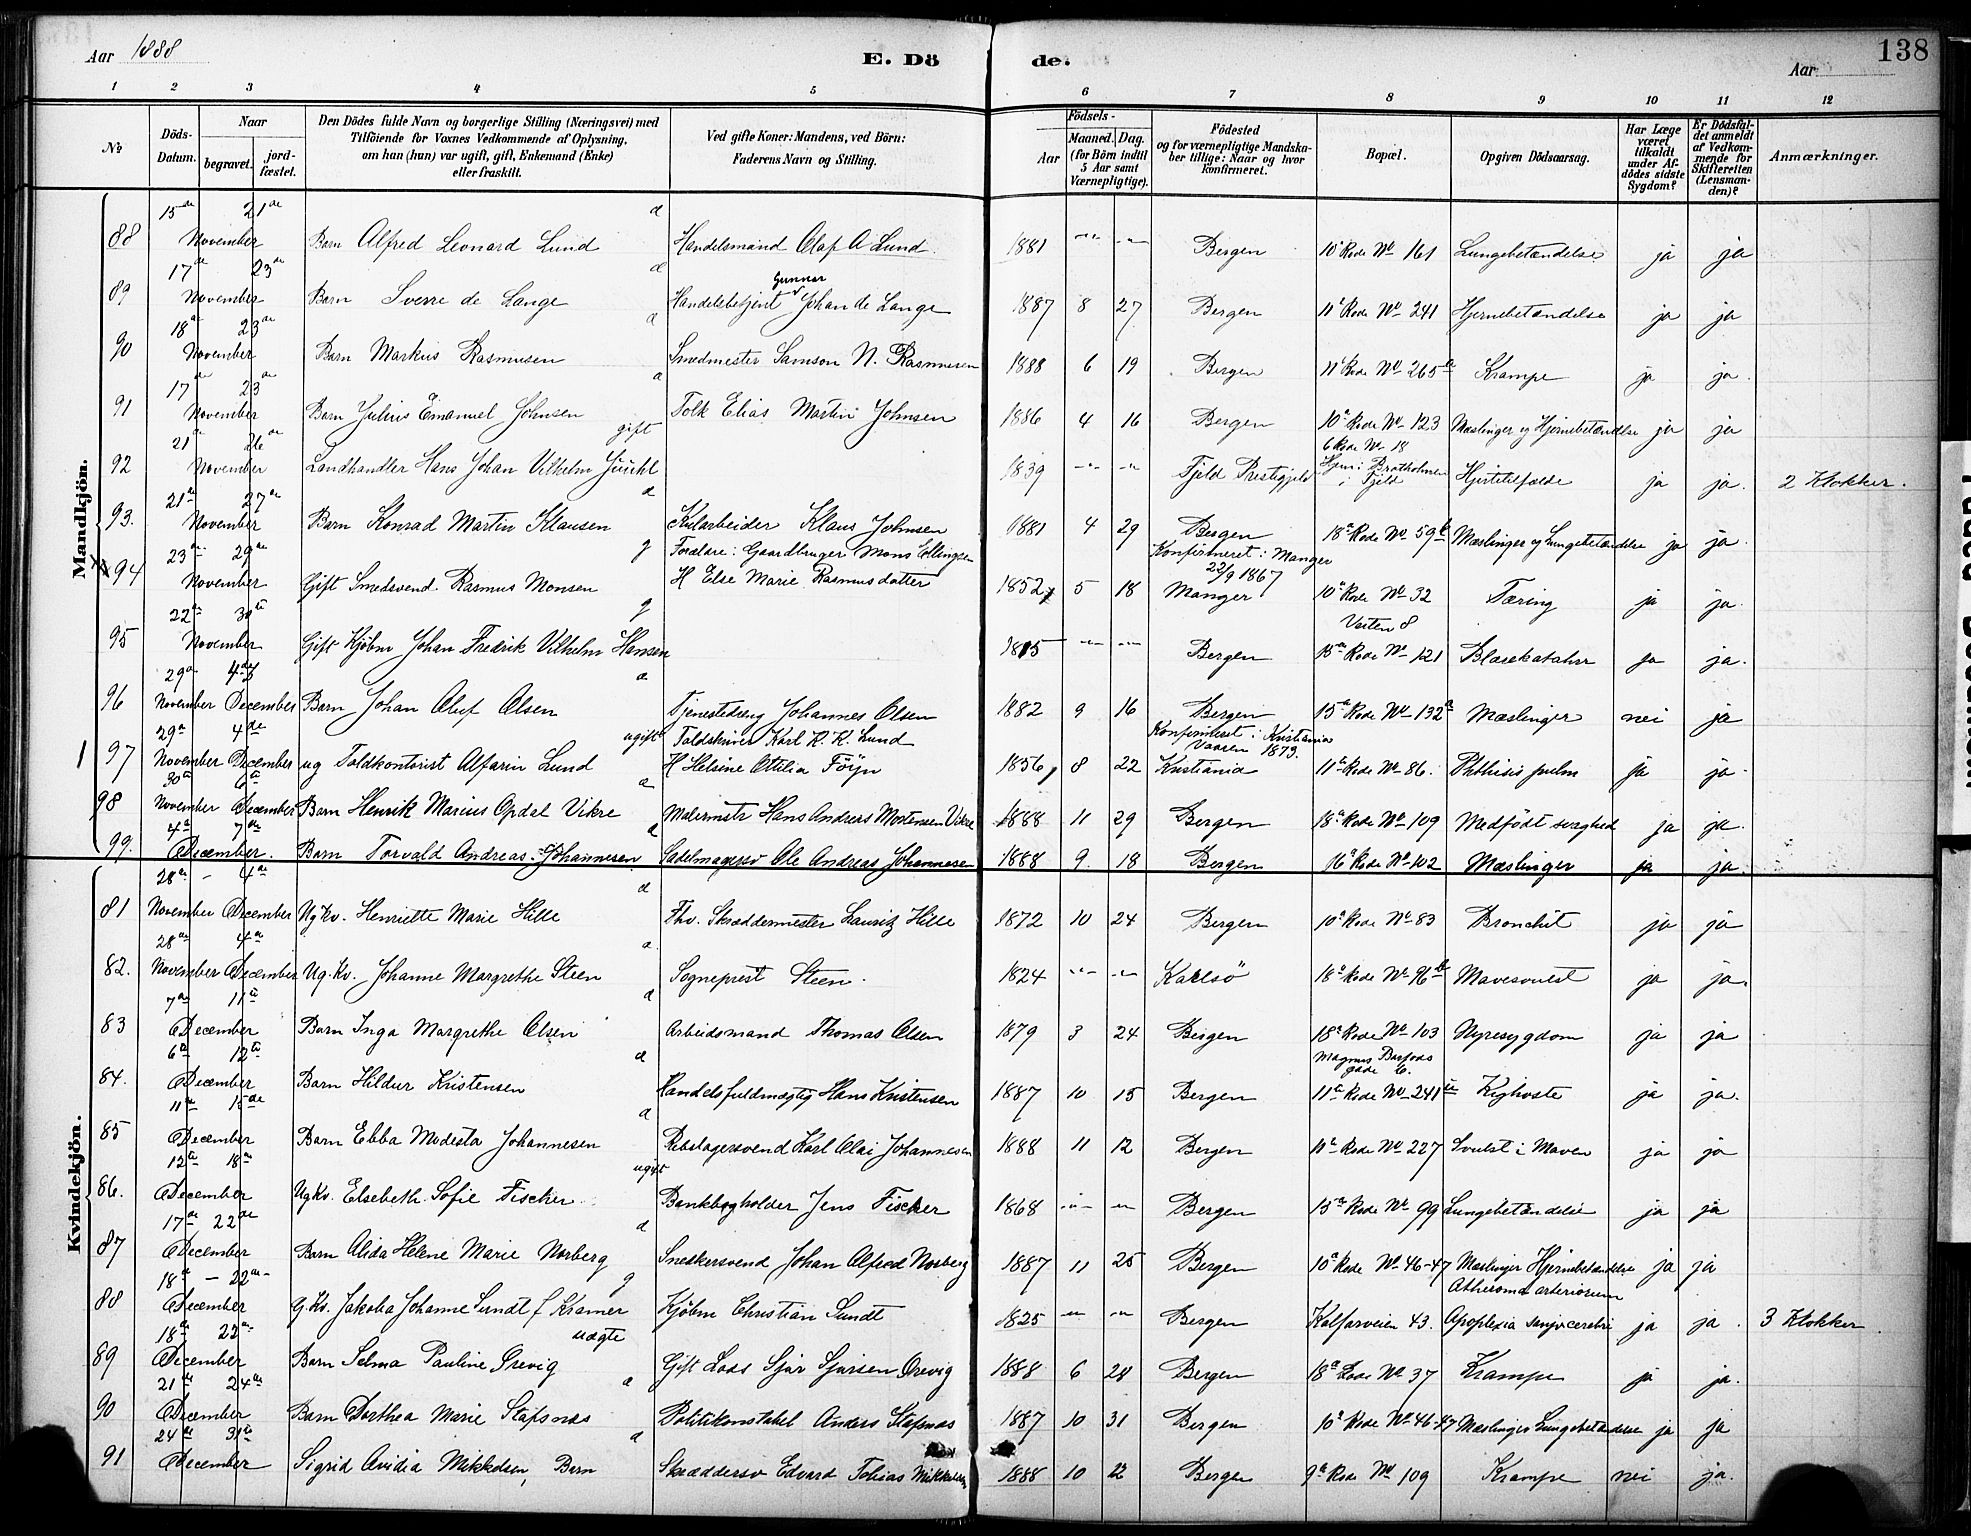 Aar 1888
E. Dö de.
138
Aar
1 2 3 4 5 6 7 8 9 10 11 12
No
Döds-Datum.
Naar
begravet. jord-fæstet.
Den Dödes fulde Navn og borgerlige Stilling (Næringsvei) med
Tilföiende for Voxnes Vedkommende af Oplysning,
om han (hun) var ugift, gift, Enkemand (Enke)
eller fraskilt.
Ved gifte Koner: Mandens, ved Börn:
Faderens Navn og Stilling.
Födsels-
Aar Maaned. Dag.
(for Börn indtil
5 Aar samt
Værnepligtige).
Födested
og for værnepligtige Mandska-
ber tillige: Naar og hvor
konfirmeret.
Bopæl.
Opgiven Dödsaarsag.
Har Læge
været
tilkaldt
under Af-
dödes sidste
Sygdom?
Er Dödsfal-
det anmeldt
af Vedkom-
mende for
Skifteretten
(Lensman-
den)?
Anmærkninger.
Mandkjön.
15de 21de
88 November Barn Alfred Leonard Lund Handelsmand Olaf A Lund. 1881 -"- -"- Bergen 10de Rode No 161 Lungebetændelse ja ja
17de 23de
Gunnar
89 November Barn Sverre de Lange Handelsbetjent Johan de Lange 1887 8 27 Bergen 11te Rode No 241 Hjernebetændelse ja ja
18de 23de
90 November Barn Markus Rasmusen Smedmester Samson N. Rasmusen 1888 6 19 Bergen 11te Rode No 265a Krampe ja ja.
17de 23de
91 November Barn Julius Emanuel Johnsen Tolk Elias Martin Johnsen 1886 4 16 Bergen 10de Rode No 123 Mæslinger og Hjernebetændelse ja ja
21de 26de gift
6 Rode No 18
92 November Landhandler Hans Johan Vilhelm 1839 -"- -"- Fjeld Prestegjeld Hjem: Bratholmen i Fjeld Hjertetilfælde ja ja. 2 Klokker.
21de 27de
93. November Barn Konrad Martin Klausen Klaus Johnsen 1881 4 29 Bergen 18de Rode No 59b Mæslinger og Lungebetændelse ja ja.
23de 29de g Forældre: Gaardbruger Mons Ellingsen
Konfirmeret i Manger
22/9 1867
94 November Gift Smedsvend. Rasmus Monsen H Else Marie Rasmusdatter 1852 5 18 Manger 10de Rode No 32 Tæring ja ja.
22de 30te g
Vaiten 8
95 November Gift Kjöbm Johan Fredrik Vilhelm Hansen 1815 -"- -"- Bergen 15de Rode No 121 Blærekatahr ja ja.
29de 4de
96 November December Barn Johan Oluf Olsen Tjenestedreng Johannes Olsen 1882 9 16 Bergen 15de Rode No 132a Mæslinger nei ja
29de 4de ugift Toldskriver Karl R. R. Lund
Konfirmeret i Kristiania
Vaaren 1873.
1 97 November December ug Toldkontorist Alfarin Lund H Helsine Ottilia Föyn 1856, 8 22 Kristiania 11te Rode No 86. Phthisis pulm ja ja.
30te 6te
98 November December Barn Henrik Marius Opdal Vikre Malermstr Hans Andreas Mortensen Vikre 1888 11 29 Bergen 18de Rode No 109 Medfödt svaghed ja ja.
4de 7de
99. December. Barn Torvald Andreas Johannesen Sadelmagersv Ole Andreas Johannesen 1888 9 18 Bergen 16de Rode No 102 Mæslinger ja ja.
Kvindekjön.
28de - 4de
81 November December Ug Kv. Henriette Marie Hille Fhv. Skræddermester Lauritz Hille 1872 10 24 Bergen 10de Rode No 83 Bronchit ja ja
28de 4de
82. November December Ug. Kv. Johanne Margrethe Steen Sogneprest Steen. 1824 -"- -"- Karlsö 18de Rode No 96b Mavesvulst ja ja.
7de 11te
83 December Barn Inga Margrethe Olsen Arbeidsmand Thomas Olsen 1879 3 24 Bergen 18de Rode No 103 Nyresygdom ja ja
6te 12te
Magnus Barfods
gade 6.
84. December Barn Hildur Kristensen Handelsfuldmægtig Hans Kristensen 1887 10 15 Bergen 11te Rode No 241 Kighoste ja ja.
11te 15de
85 December Barn Ebba Modesta Johannesen Rebslagersvend Karl Olai Johannesen 1888 11 12 Bergen 11te Rode No 227 Svulst i Maven ja ja
12te 18de ugift
86. December Ug Kv. Elsebeth Sofie Fischer Bankbogholder Jens Fischer 1868 -"- -"- Bergen 15de Rode No 99 Lungebetændelse ja ja
17de 22de
87 December Barn Alida Helene Marie Norberg Snedkersvend Johan Alfred Norberg 1887 11 25 Bergen 10de Rode No 46-47 Mæslinger Hjernebetændelse ja ja
18de - 22de g
Atheroma arteriorum
88 December G. Kv. Jakoba Johanne Sundt f Kramer Kjöbm Christian Sundt 1825 -"- -"- Bergen Kalfarveien 43. Apoplexia sangv. cerebri ja ja. 3 Klokker.
18de 22de uægte
89 December Barn Selma Pauline Grevig Gift Lods Sjur Sjursen Orevig 1888 6 28 Bergen 18de Rode No 37 Krampe ja ja.
21de 24de
90 December Barn Dorthea Marie Stafsnæs Politikonstabel Anders Stafsnæs 1887 10 31 Bergen 10de Rode No 46-47 Mæslinger Lungebetændelse ja ja
24de 31te
91 December Sigrid Ovidia Mikkelsen, Barn Skræddersv Edvard Tobias Mikkelsen 1888 10 22 Bergen 9de Rode No 109 Krampe nei ja.